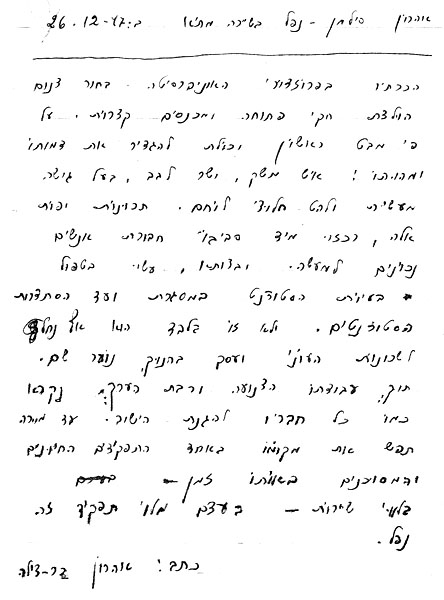 אהרון סילמן - נפל בשיירה מת״א ב: 26.12.47
הכרתיו בפרוזדורי האוניברסיטה. בחור צנום
חולצת חקי פתוחה ומכנסים קצרות. על
פי מבט ראשון יכולת להגדיר את דמותו
ומהותו! איש משק, ישר לגב, בעל גישה
מעשית ולהט חלוצי לוחם. תכונות יפות
אלה, רכזו מיד סביבו חבורת אנשים
נכונים למעשה. ובצוותו, עשוי בטפול
בבעיות הסטודנט במסגרת ועד הסתדרות
הסטודנטים. ולא זו בלבד הוא אץ
לשכונות העוני ועסק בחנוך נוער שם.
תוך עבודתו הצנועה ורבת הערך, נקרא
כמו כל חבריו להגנת הישוב. עד מהרה
תפש את מקומו באחד התפקידים החיוניים
והמסוכנים בשעתו זמן -
בלווי שיירות - בעצם מלוי תפקיד זה
נפל.
כתב: אהרון בר-צילה